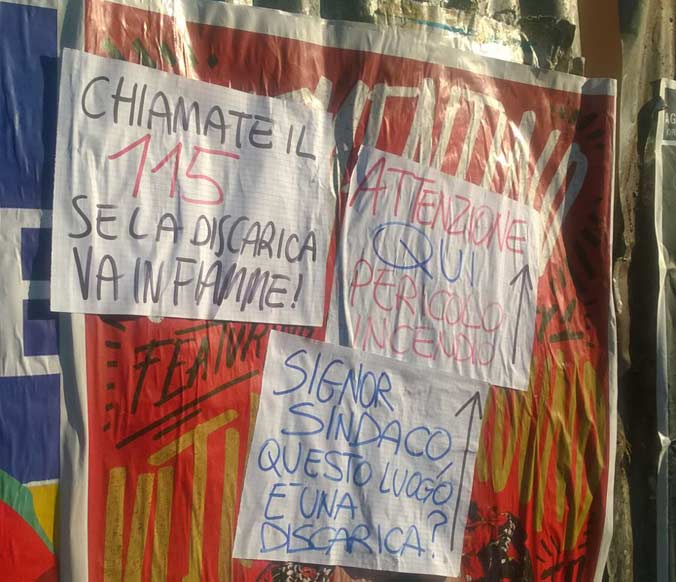 CHIAMATE IL
115
SE LA DISCARICA
VA IN FIAMME!
ATTENZIONE
QUI
PERICOLO
INCENDIO
SIGNOR
SINDACO,
QUESTO LUOGO
E' UNA
DISCARICA?